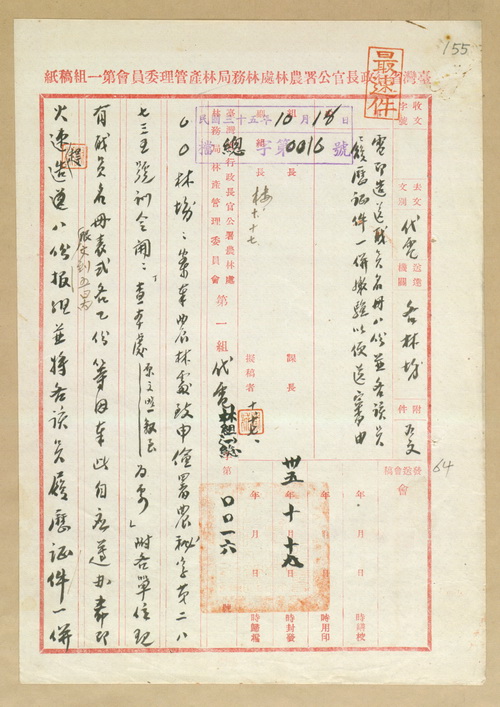 155
最速件
臺灣省行政長官公署農林處林務局林產管理委員會第一組稿紙
收文 字號
去文 文別 代電
送達 機關 各林場
附件 如文
電即造送職員名冊八份並各該員
履歷証件一併繳驗以便送審由
組長
課長
民國三十五年10月18日
檔 總 字第0016號
擬稿者
臺灣省行政長官公署農林處
林務局林產管理委員會
第一組 代電
林組總
第 00一六 號
卅五 十 十九
年 月 日 時繕校
年 月 日 時用印
年 月 日 時封發
年 月 日 時歸檔
會
64
00林場:案奉農林處致申儉署農秘字第二八
七三五號訓令開:「查本處
原文照敘至
為要」附各單位現
有職員名冊表式各乙份等因奉此自應遵辦希即
火速造送八份報組並將各該員履歷証件一併